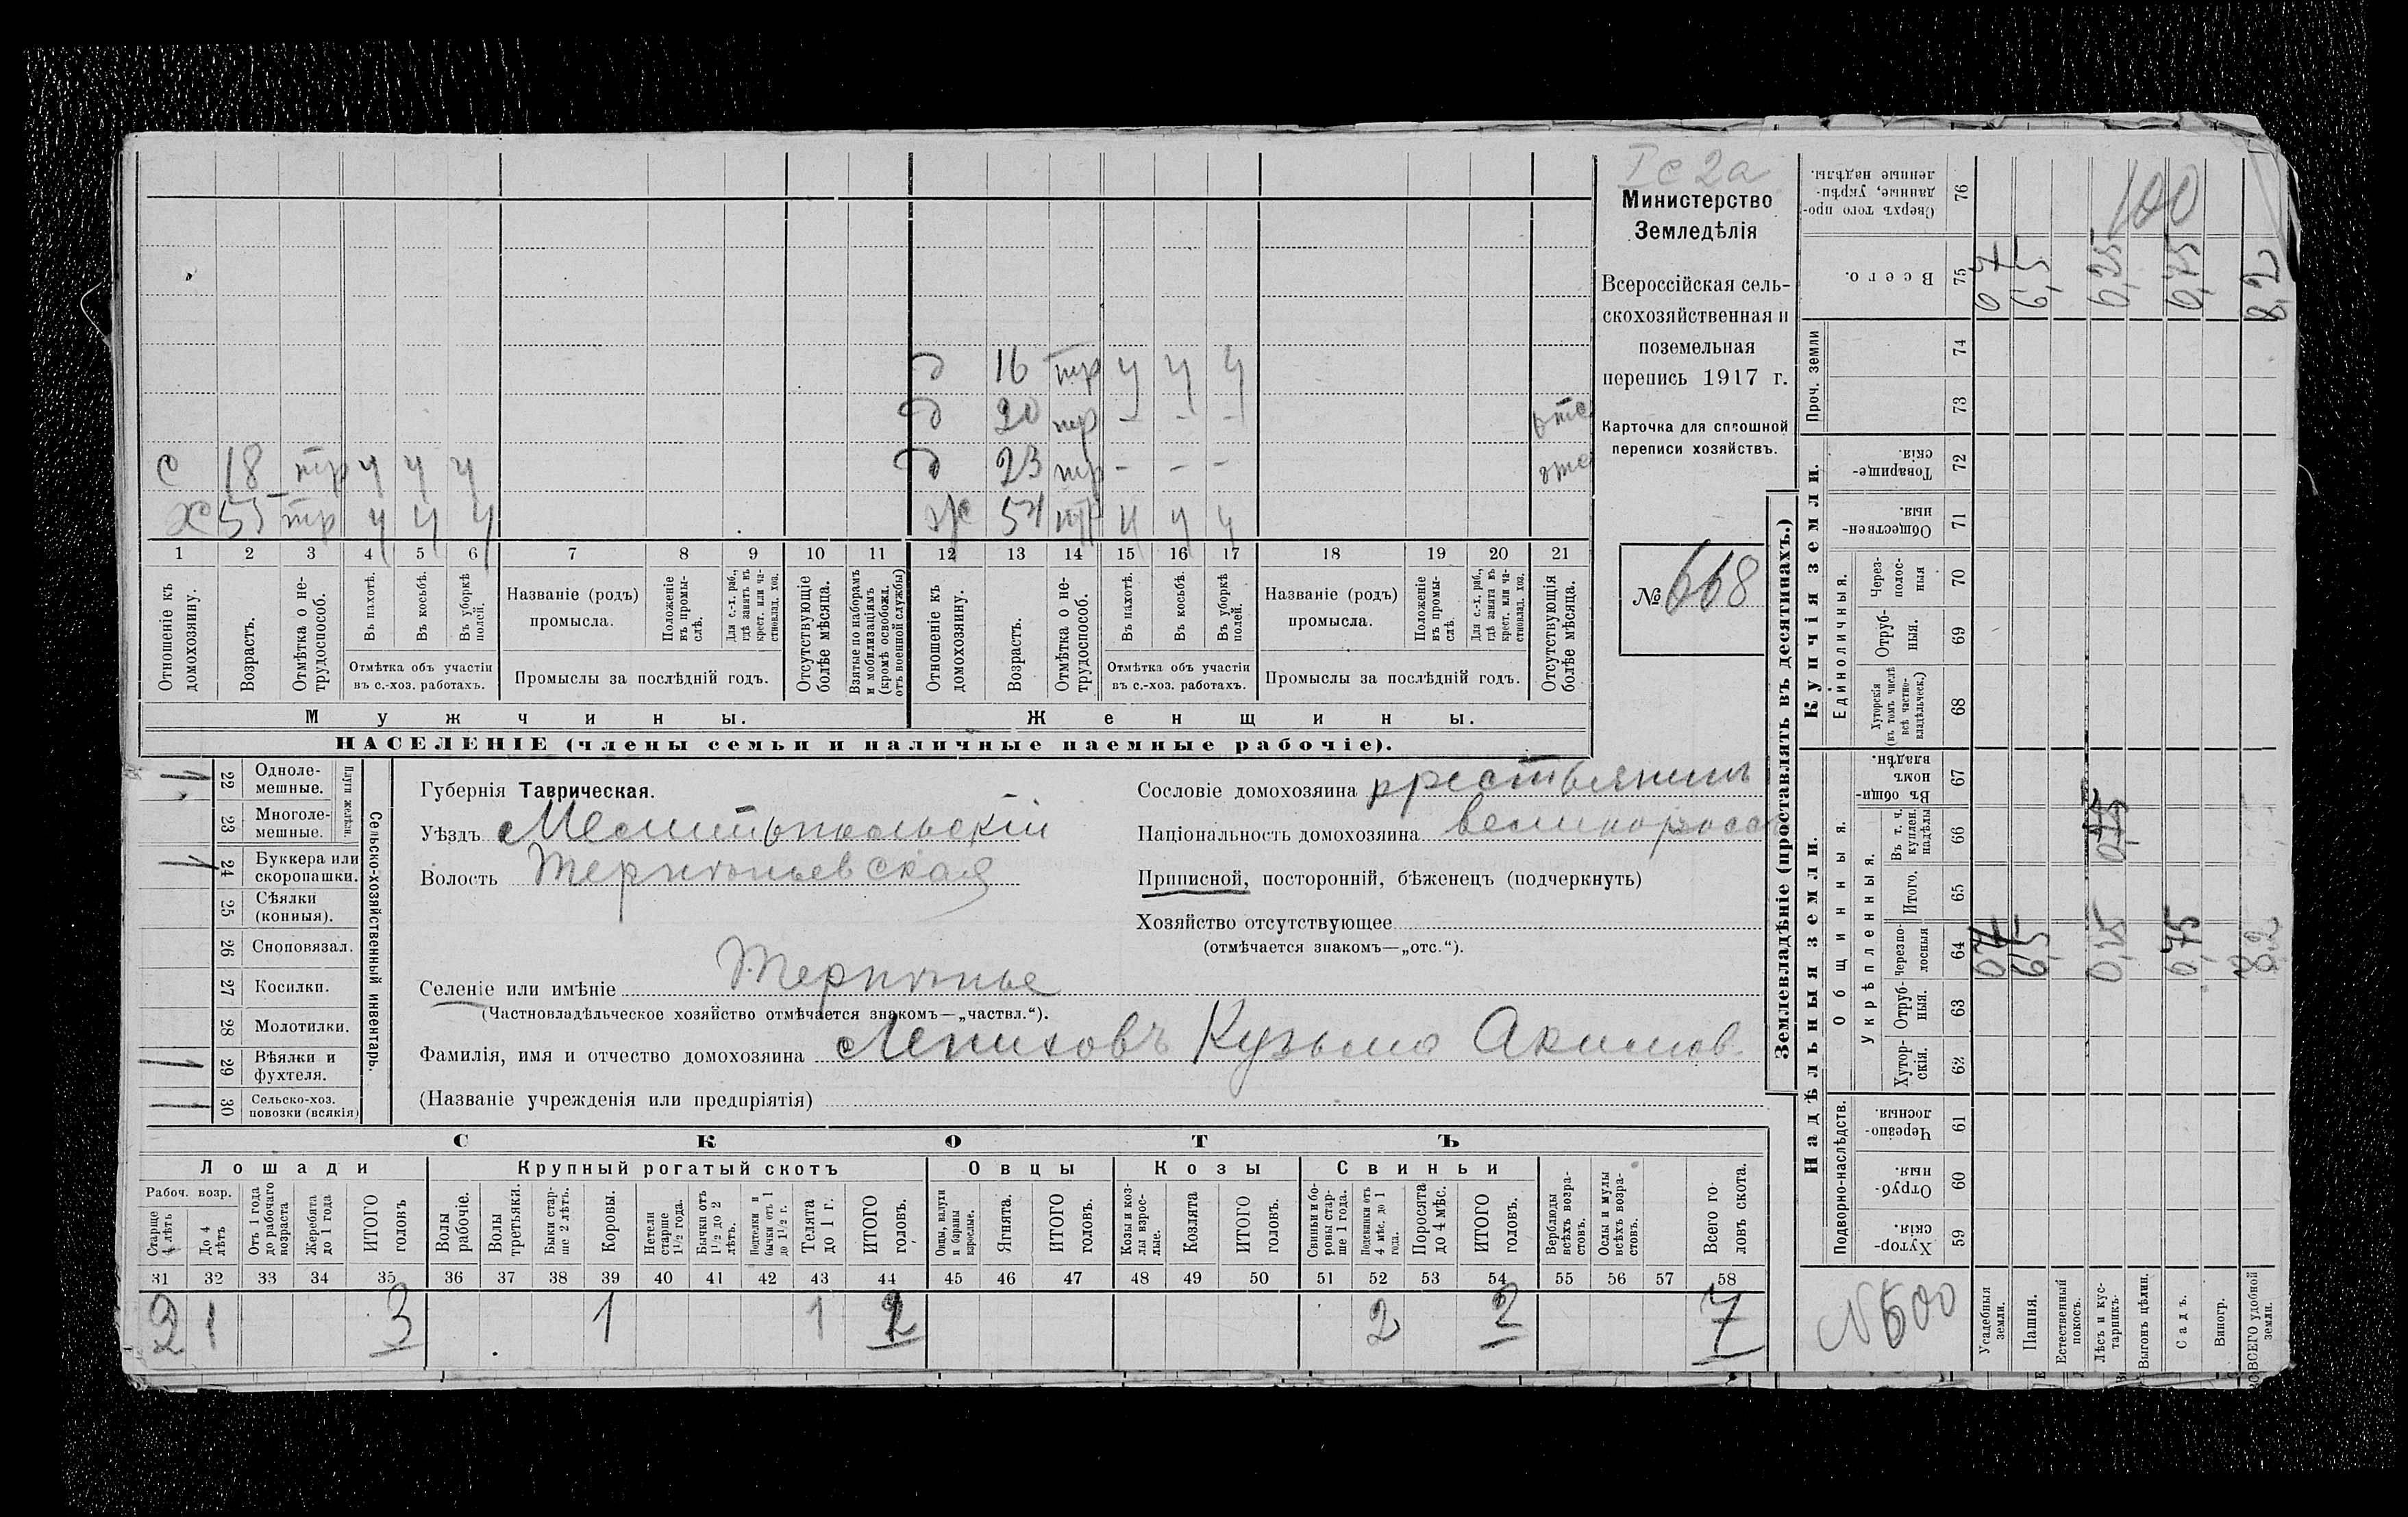 I с 2а
Министерство
Земледѣлія
Всероссійская сель-
скохозяйственная и
поземельная
перепись 1917 г.
Карточка для сплошной
переписи хозяйствъ.
№ 668
д 16 тр у у у
д 20 тр - - - отс
с 18 тр у у у д 23 тр - - - отс
х 55 тр у у у ж 54 тр у у у
1 2 3 4 5 6 7 8 9 10 11 12 13 14 15 16 17 18 19 20 21
Отношеніе къ домохозяину.
Возрастъ.
Отмѣтка о не-трудоспособ.
Въ пахотѣ.
Въ косьбѣ.
Въ уборкѣ полей.
Отмѣтка объ участіи
въ с.-хоз. работахъ.
Названіе (родъ)
промысла.
Положеніе въ промы-слѣ.
Для с.-х. раб., гдѣ занятъ въ крест. или ча-стновлад. хоз.
Промыслы за послѣдній годъ.
Отсутствующіе болѣе мѣсяца.
Взятые по наборамъ и мобилизаціямъ (кромѣ освобожд. отъ военной службы)
Отношеніе къ домохозяину.
Возрастъ.
Отмѣтка о не-трудоспособ.
Въ пахотѣ.
Въ косьбѣ.
Въ уборкѣ полей.
Отмѣтка объ участіи
въ с.-хоз. работахъ.
Названіе (родъ)
промысла.
Положеніе въ промы-слѣ.
Для с.-х. раб., гдѣ занята въ крест. или ча-стновлад. хоз.
Промыслы за послѣдній годъ.
Отсутствующія болѣе мѣсяца.
Мужчины. Женщины.
НАСЕЛЕНІЕ (члены семьи и наличные наемные рабочіе).
Сельско-хозяйственный инвентарь.
Плуги желѣзн.
22 Одноле-мешные. 1
23 Многоле-мешные.
24 Буккера или скоропашки. 1
25 Сѣялки (конныя).
26 Сноповязал.
27 Косилки.
28 Молотилки.
29 Вѣялки и фухтеля. 1
30 Сельско-хоз. повозки (всякія) 1
Губернія Таврическая.
Уѣздъ Мелитопольскій
Волость Терпѣньевская
Селеніе или имѣніе Терпѣнье
(Частновладѣльческое хозяйство отмѣчается знакомъ—„частвл.“).
Фамилія, имя и отчество домохозяина Лепиховъ Кузьма Акимов.
(Названіе учрежденія или предпріятія)
Сословіе домохозяина крестьянинъ
Національность домохозяина великоросс
Приписной, посторонній, бѣженецъ (подчеркнуть)
Хозяйство отсутствующее
(отмѣчается знакомъ—„отс.“).
СКОТЪ
Лошади Крупный рогатый скотъ Овцы Козы Свиньи
Рабоч. возр.
Старше 4 лѣтъ
До 4 лѣтъ
Отъ 1 года до рабочаго возраста
Жеребята до 1 года
ИТОГО головъ
Волы рабочіе.
Волы третьяки.
Быки стар-ше 2 лѣтъ.
Коровы.
Нетели старше 1½ года.
Бычки отъ 1½ до 2 лѣтъ.
Подтелки и бычки отъ 1 до 1½ г.
Телята до 1 г.
ИТОГО головъ.
Овцы, валухи и бараны взрослые.
Ягнята.
ИТОГО головъ.
Козы и коз-лы взрос-лые.
Козлята
ИТОГО головъ.
Свиньи и бо-ровы стар-ше 1 года.
Подсвинки отъ 4 мѣс. до 1 года.
Поросята до 4 мѣс.
ИТОГО головъ.
Верблюды всѣхъ возра-стовъ.
Ослы и мулы всѣхъ возра-стовъ.
Всего го-ловъ скота.
31 32 33 34 35 36 37 38 39 40 41 42 43 44 45 46 47 48 49 50 51 52 53 54 55 56 57 58
2 1 3 1 1 2 2 2 7
Землевладѣніе (проставлять въ десятинахъ.)
Надѣльныя земли.
Купчія земли.
Проч. земли
Подворно-наслѣдств.
Общинныя.
Укрѣпленныя.
Единоличныя.
Хутор-скія. 59
Отруб-ныя. 60
Черезпо-лосныя. 61
Хутор-скія. 62
Отруб-ныя. 63
Черезпо-лосныя 64
Итого. 65
Въ т. ч. куплен. надѣлы 66
Въ общи-номъ владѣн. 67
Хуторскія (въ томъ числѣ всѣ частно-владѣльческ.) 68
Отруб-ныя. 69
Через-полос-ныя 70
Обществен-ныя. 71
Товарище-скія. 72
73
74
Всего. 75
Сверхъ того про-данные, укрѣп-ленные надѣлы. 76
N 500
100
Усадебныя земли. 0,7 0,7
Пашня. 6,5 6,5
Естественный покосъ.
Лѣсъ и кус-тарникъ. 0,25 0,25 0,25
Выгонъ цѣлин.
Садъ. 0,75 0,75
Виногр.
ВСЕГО удобной земли. 8,2 8,2